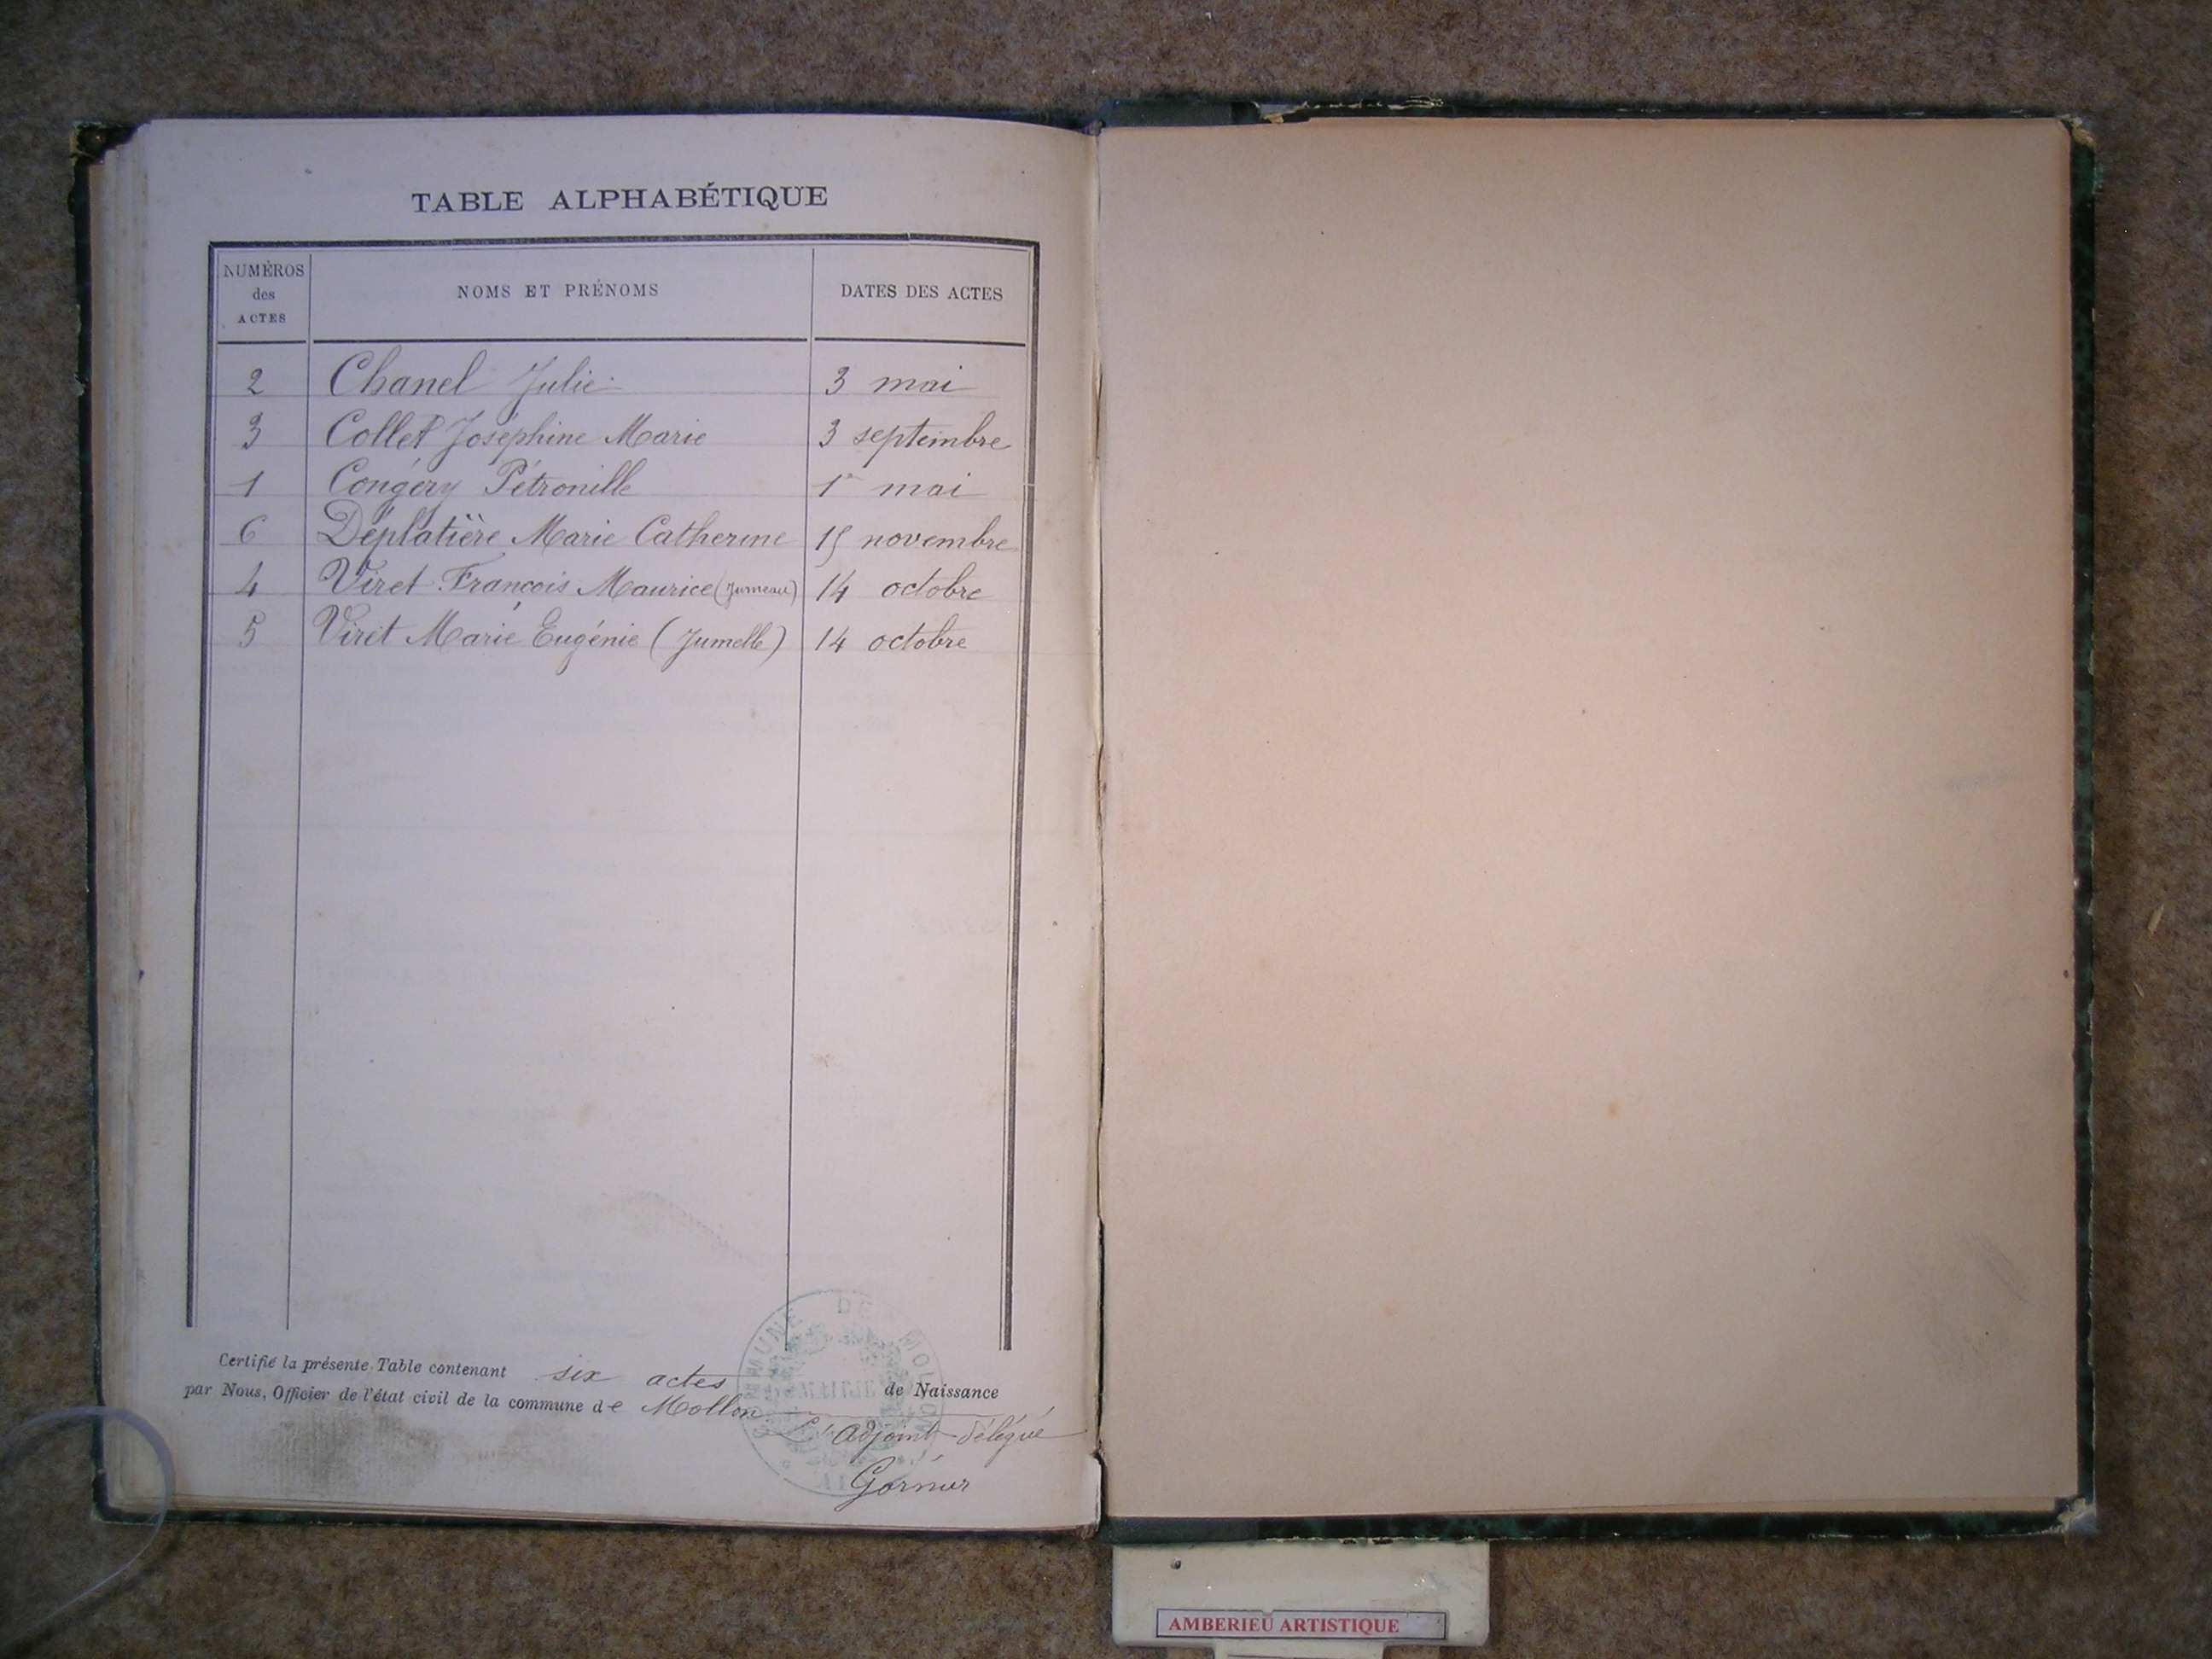 TABLE ALPHABÉTIQUE
NUMÉROS des ACTES NOMS ET PRÉNOMS DATES DES ACTES
2 Chanel Julie 3 mai
3 Collet Joséphine Marie 3 septembre
1 Congéry Pétronille 1er mai
6 Déplatière Marie Catherine 15 novembre
4 Viret François Maurice (Jumeau) 14 octobre
5 Viret Marie Eugénie (Jumelle) 14 octobre
Certifié la présente Table contenant six actes de Naissance
par Nous, Officier de l'état civil de la commune de Mollon
L'adjoint délégué
COMMUNE DE MOLLON
MAIRIE
AIN
AMBERIEU ARTISTIQUE